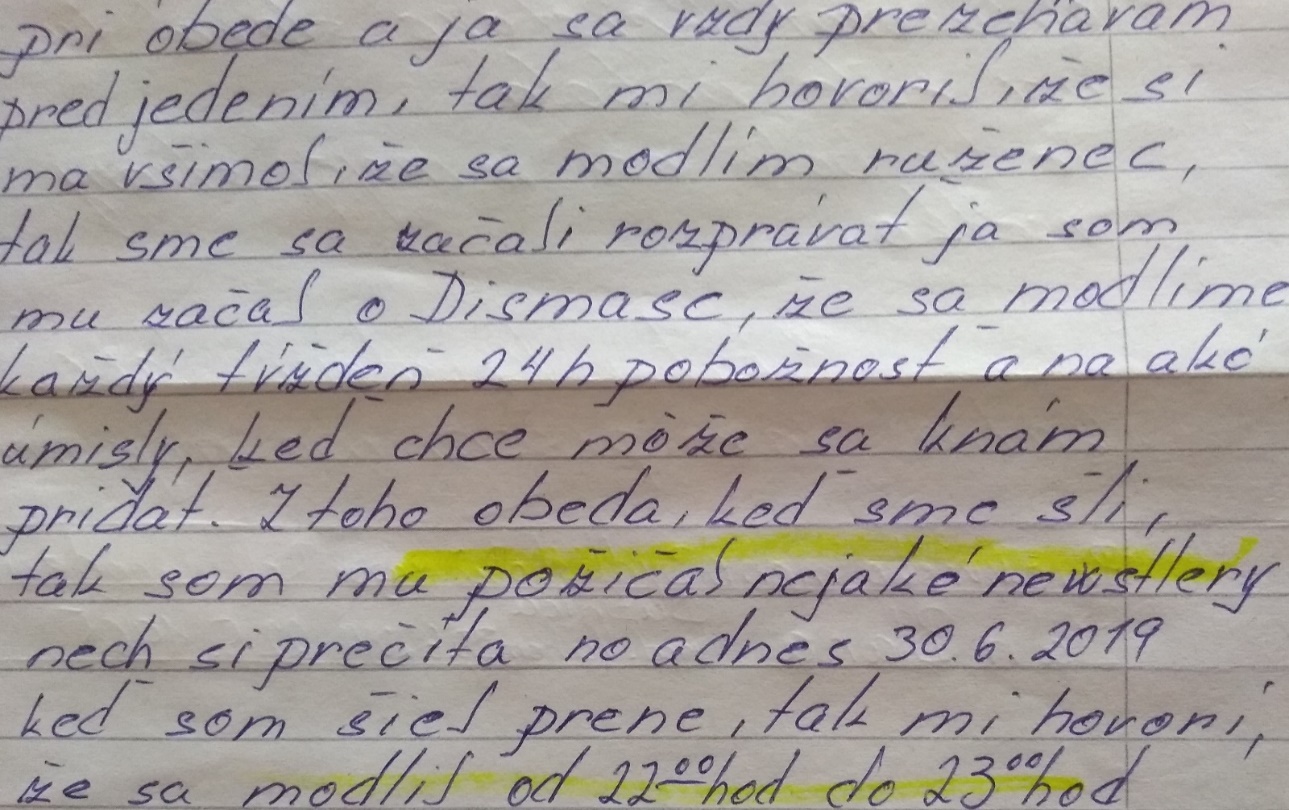 pri obede a ja sa vždy prežehávam
pred jedením, tak mi hovoril, že si
ma všimol, že sa modlím ruženec,
tak sme sa začali rozprávať ja som
mu začal o Dismase, že sa modlíme
každý tíždeň 24h pobožnosť a na aké
úmisly, keď chce môže sa knám
pridať. Z toho obeda, keď sme šli,
tak som mu požičal nejaké newstlery
nech si prečíta no adnes 30.6.2019
keď som šiel prene, tak mi hovorí,
že sa modlil od 22⁰⁰hod do 23⁰⁰hod